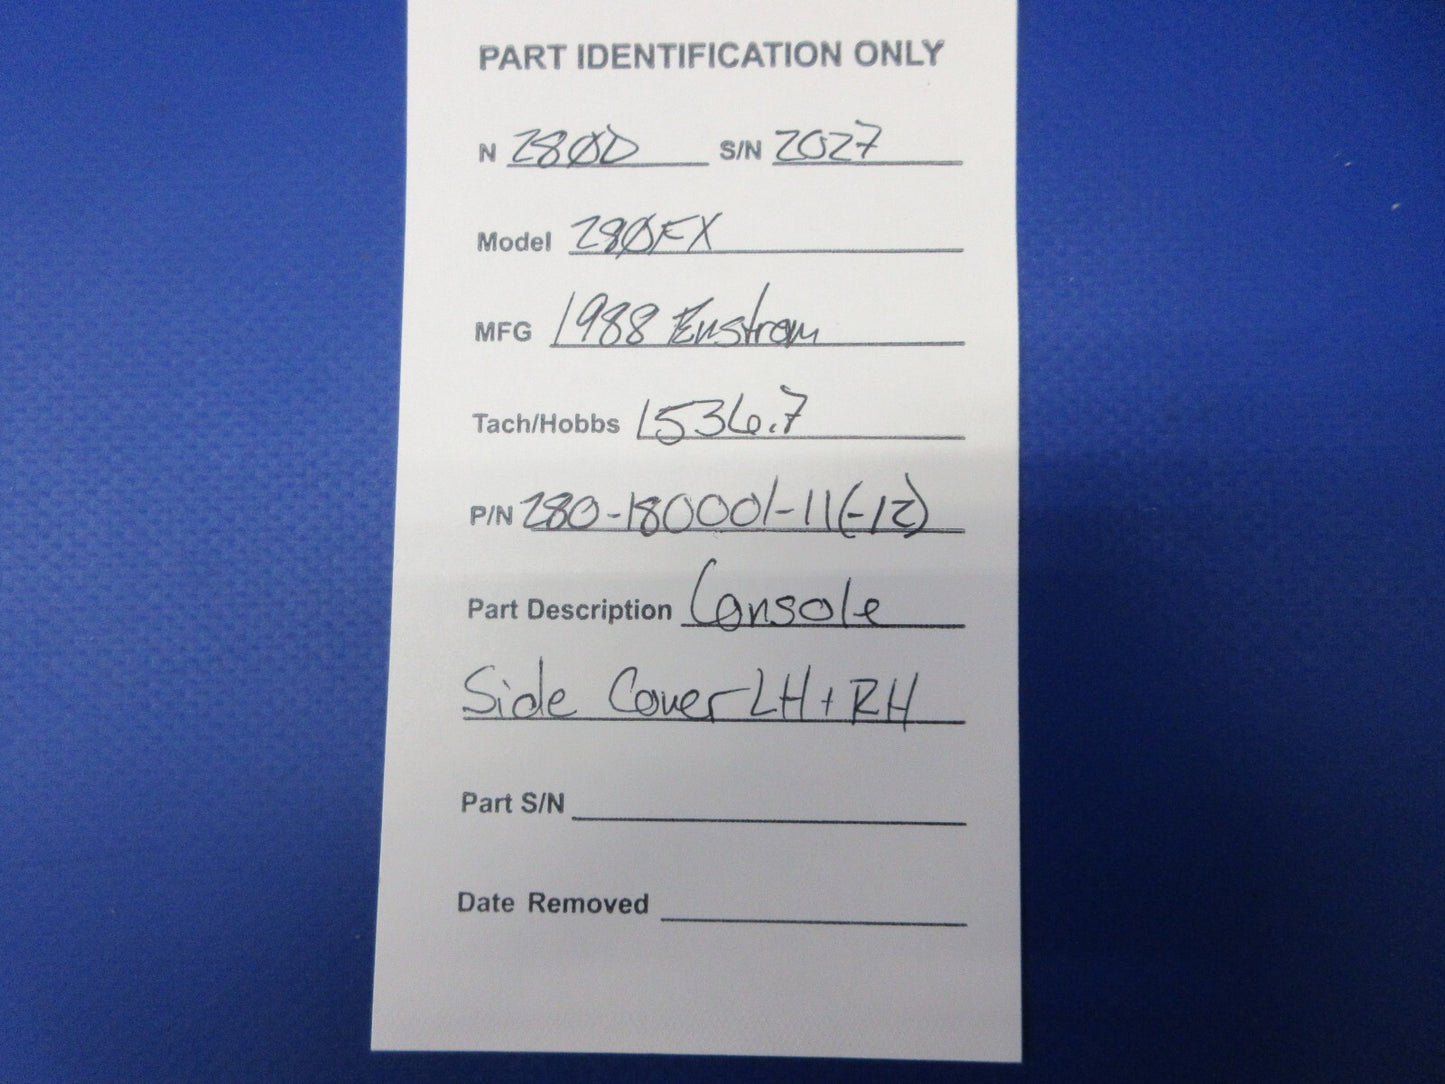 PART IDENTIFICATION ONLY
N 28ØD S/N 2027
Model 28ØFX
MFG 1988 Enstrom
Tach/Hobbs 1536.7
P/N 280-180001-11(-12)
Part Description Console
Side Cover LH + RH
Part S/N
Date Removed